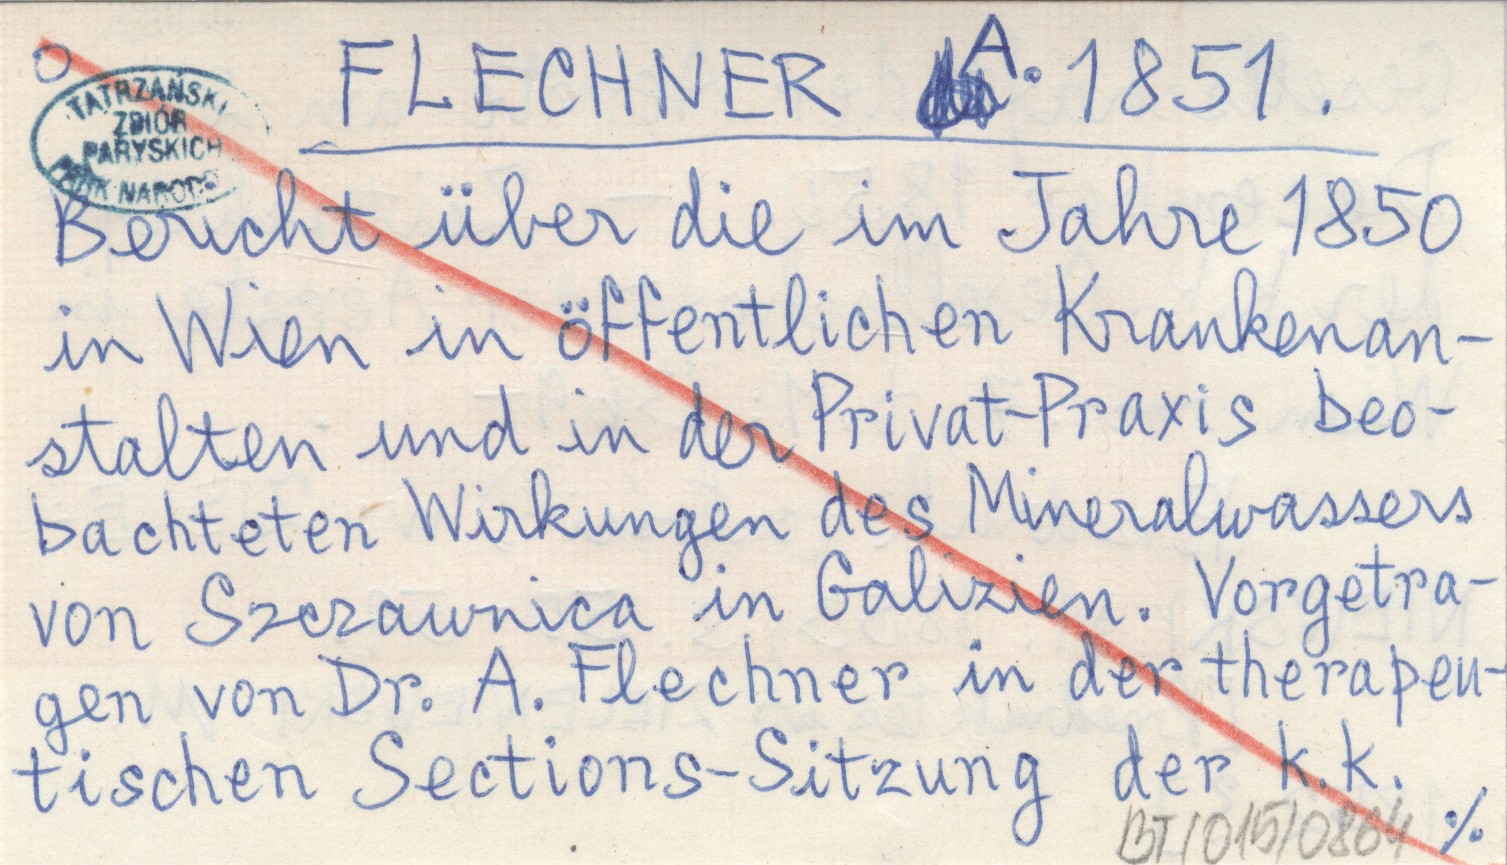 FLECHNER A. 1851.
TATRZAŃSKI
ZBIÓR
PARYSKICH
PARK NAROD
Bericht über die im Jahre 1850
in Wien in öffentlichen Krankenan-
stalten und in der Privat-Praxis beo-
bachteten Wirkungen des Mineralwassers
von Szczawnica in Galizien. Vorgetra-
gen von Dr. A. Flechner in der therapeu-
tischen Sections-Sitzung der k.k.
BT/015/0864 ·/·